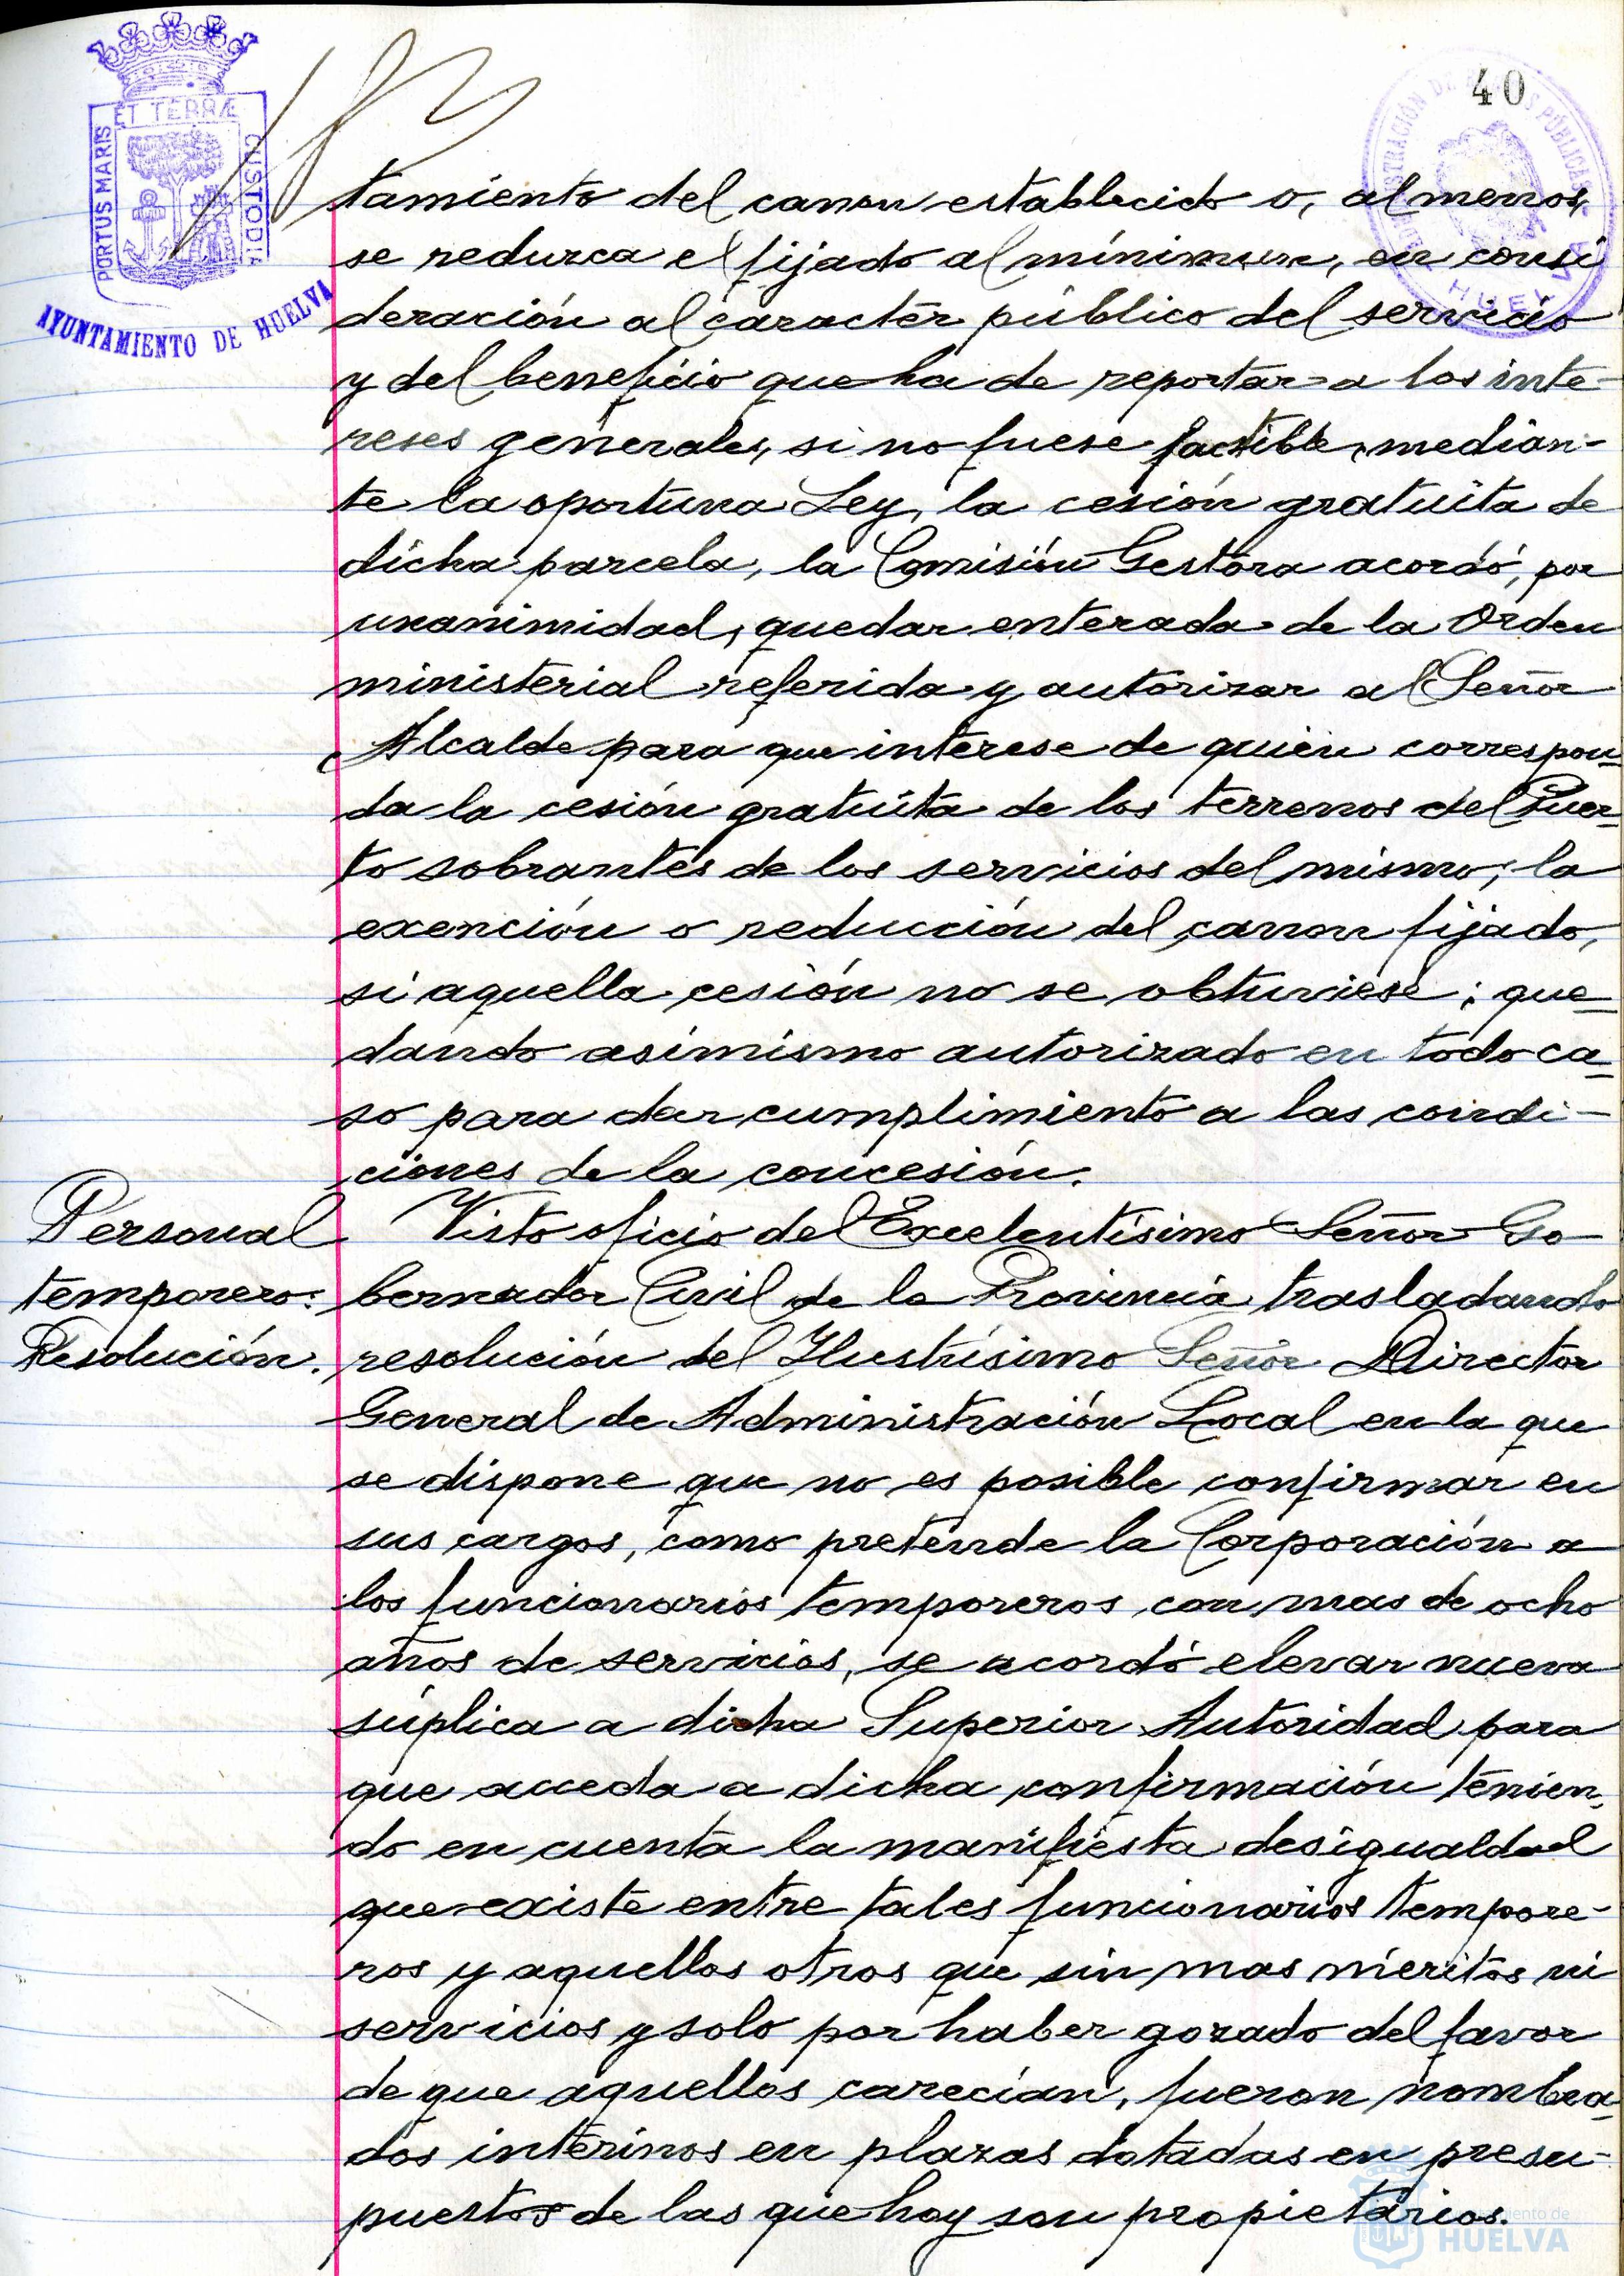 40
ET TERRÆ
PORTUS MARIS
CUSTODIA
AYUNTAMIENTO DE HUELVA
HUELVA
tamiento del canon establecido o, al menos,
se reduzca el fijado al mínimum, en consi
deración al carácter público del servicio
y del beneficio que ha de reportar a los inte-
reses generales, si no fuese factible, median-
te la oportuna Ley, la cesión gratuita de
dicha parcela, la Comisión Gestora acordó, por
unanimidad, quedar enterada de la Orden
ministerial referida y autorizar al Señor
Alcalde para que interese de quien correspon-
da la cesión gratuita de los terrenos del Puer-
to sobrantes de los servicios del mismo; la
exención o reducción del canon fijado,
si aquella cesión no se obtuviese; que-
dando asimismo autorizado en todo ca-
so para dar cumplimiento a las condi-
ciones de la concesión.
Personal
temporero:
Resolución.
Visto oficio del Excelentísimo Señor Go-
bernador Civil de la Provincia trasladando
resolución del Ilustrísimo Señor Director
General de Administración Local en la que
se dispone que no es posible confirmar en
sus cargos, como pretende la Corporación a
los funcionarios temporeros con mas de ocho
años de servicios, se acordó elevar nueva
súplica a dicha Superior Autoridad para
que acceda a dicha confirmación tenien-
do en cuenta la manifiesta desigualdad
que existe entre tales funcionarios tempore-
ros y aquellos otros que sin mas méritos ni
servicios y solo por haber gozado del favor
de que aquellos carecían, fueron nombra-
dos interinos en plazas dotadas en presu-
puestos de las que hoy son propietarios.
HUELVA